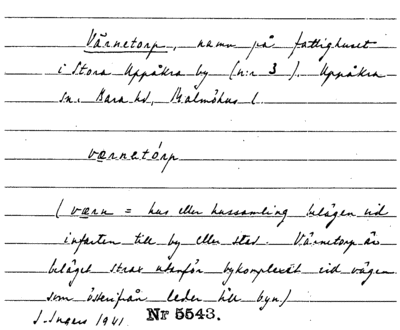 Värnetorp, namn på fattighuset
i Stora Uppåkra by (n:r 3). Uppåkra
sn. Bara hd, Malmöhus l.
værnetórp
(værn = hus eller hussamling belägen vid
infarten till by eller stad. Värnetorp är
beläget strax utanför bykomplexet vid vägen
som österifrån leder till byn)
I. Ingers 1941. Nr 5543.